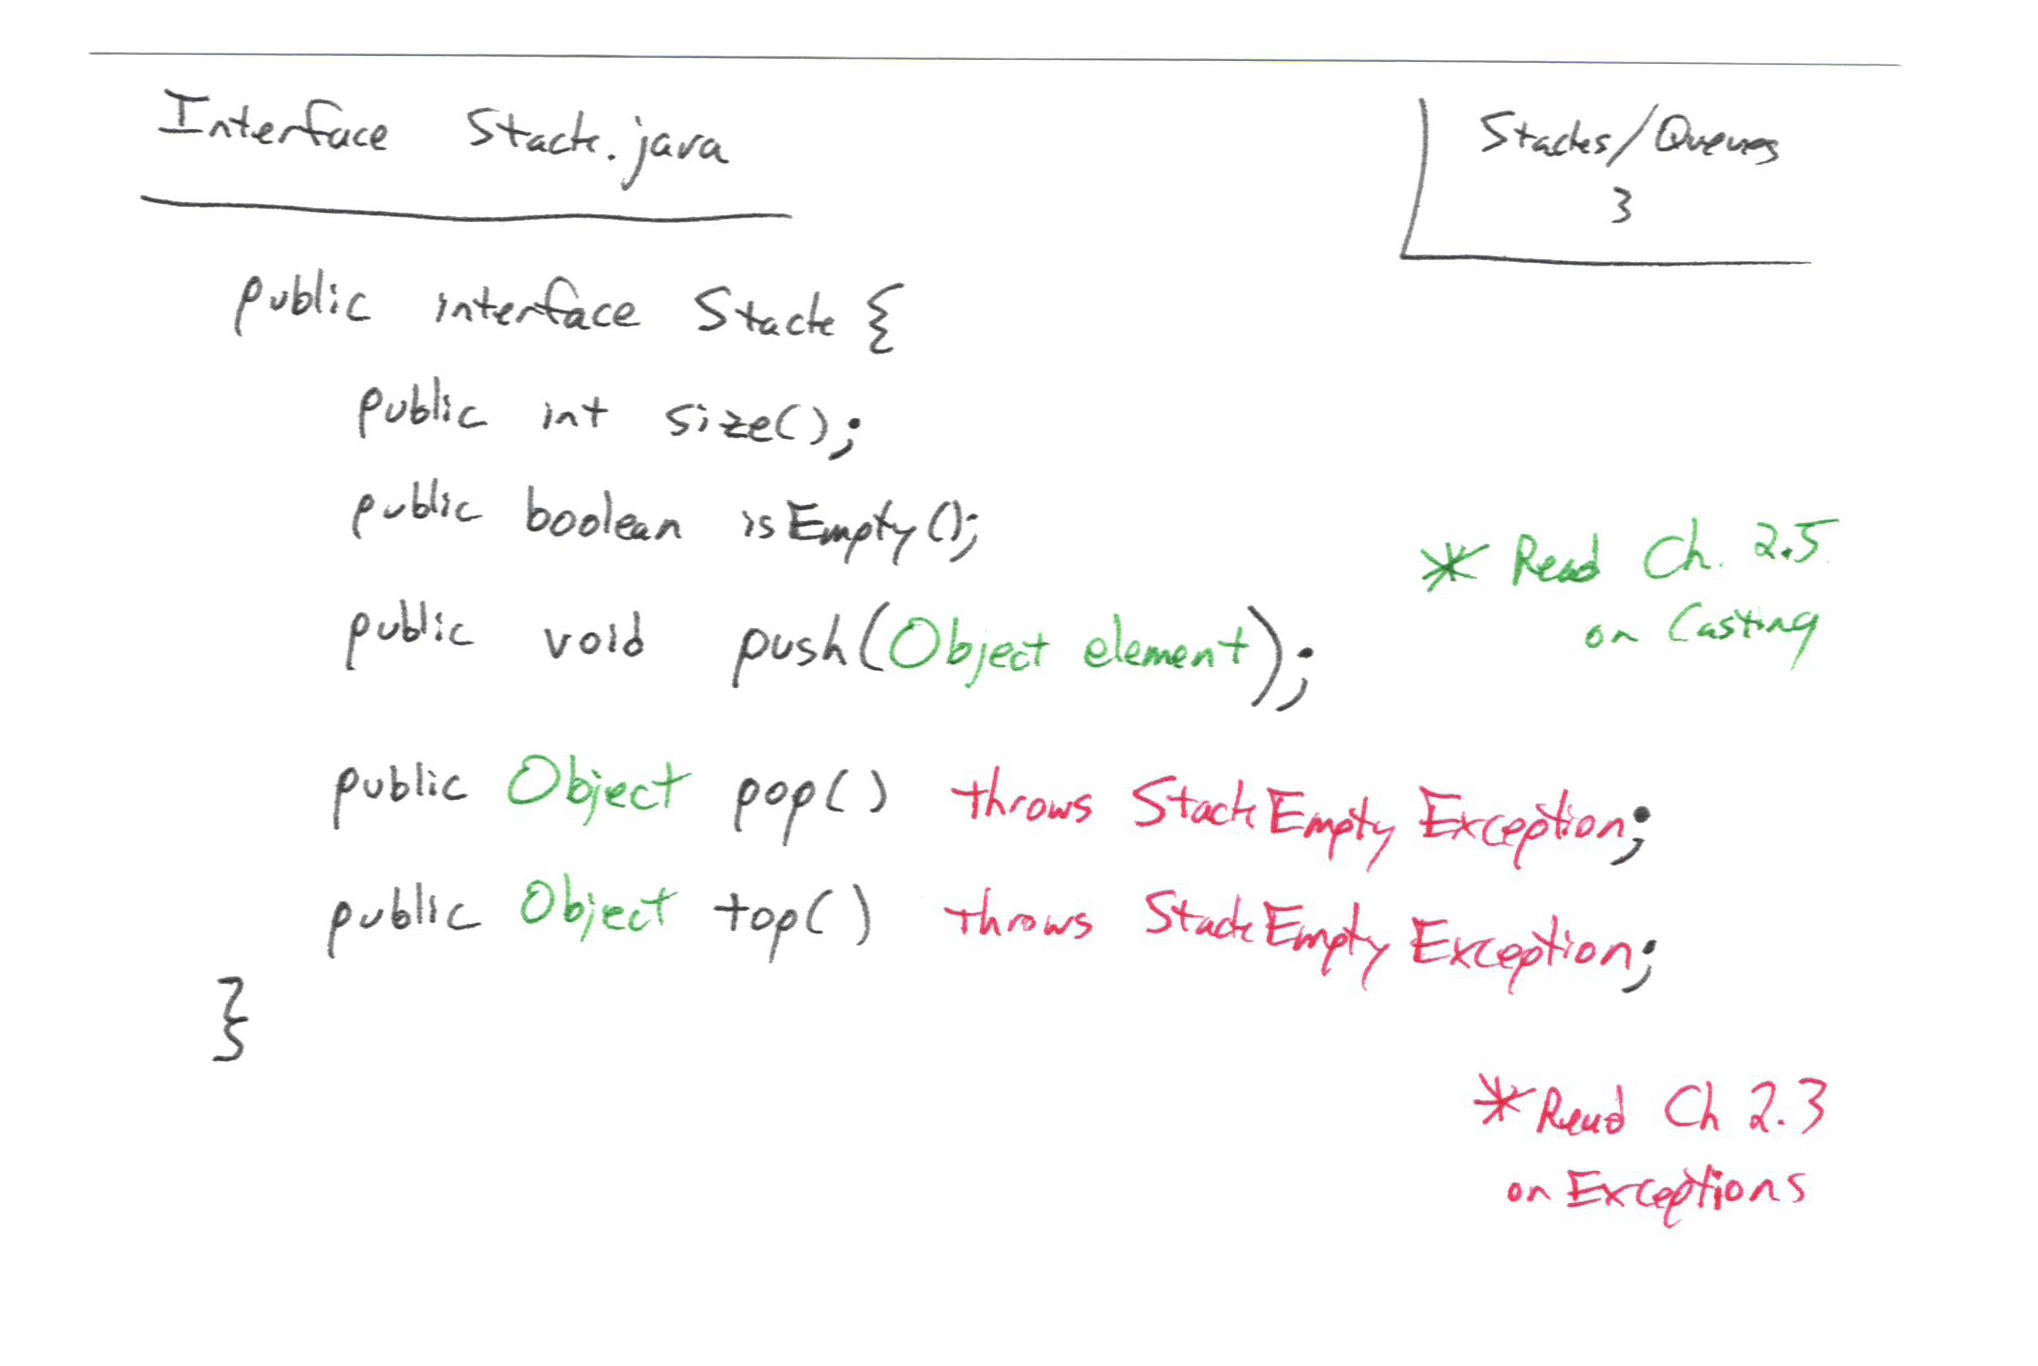 Interface Stack.java
Stacks/Queues
3
public interface Stack {
public int size();
public boolean isEmpty();
public void push(Object element);
* Read Ch. 2.5
on Casting
public Object pop() throws StackEmptyException;
public Object top() throws StackEmptyException;
}
* Read Ch 2.3
on Exceptions